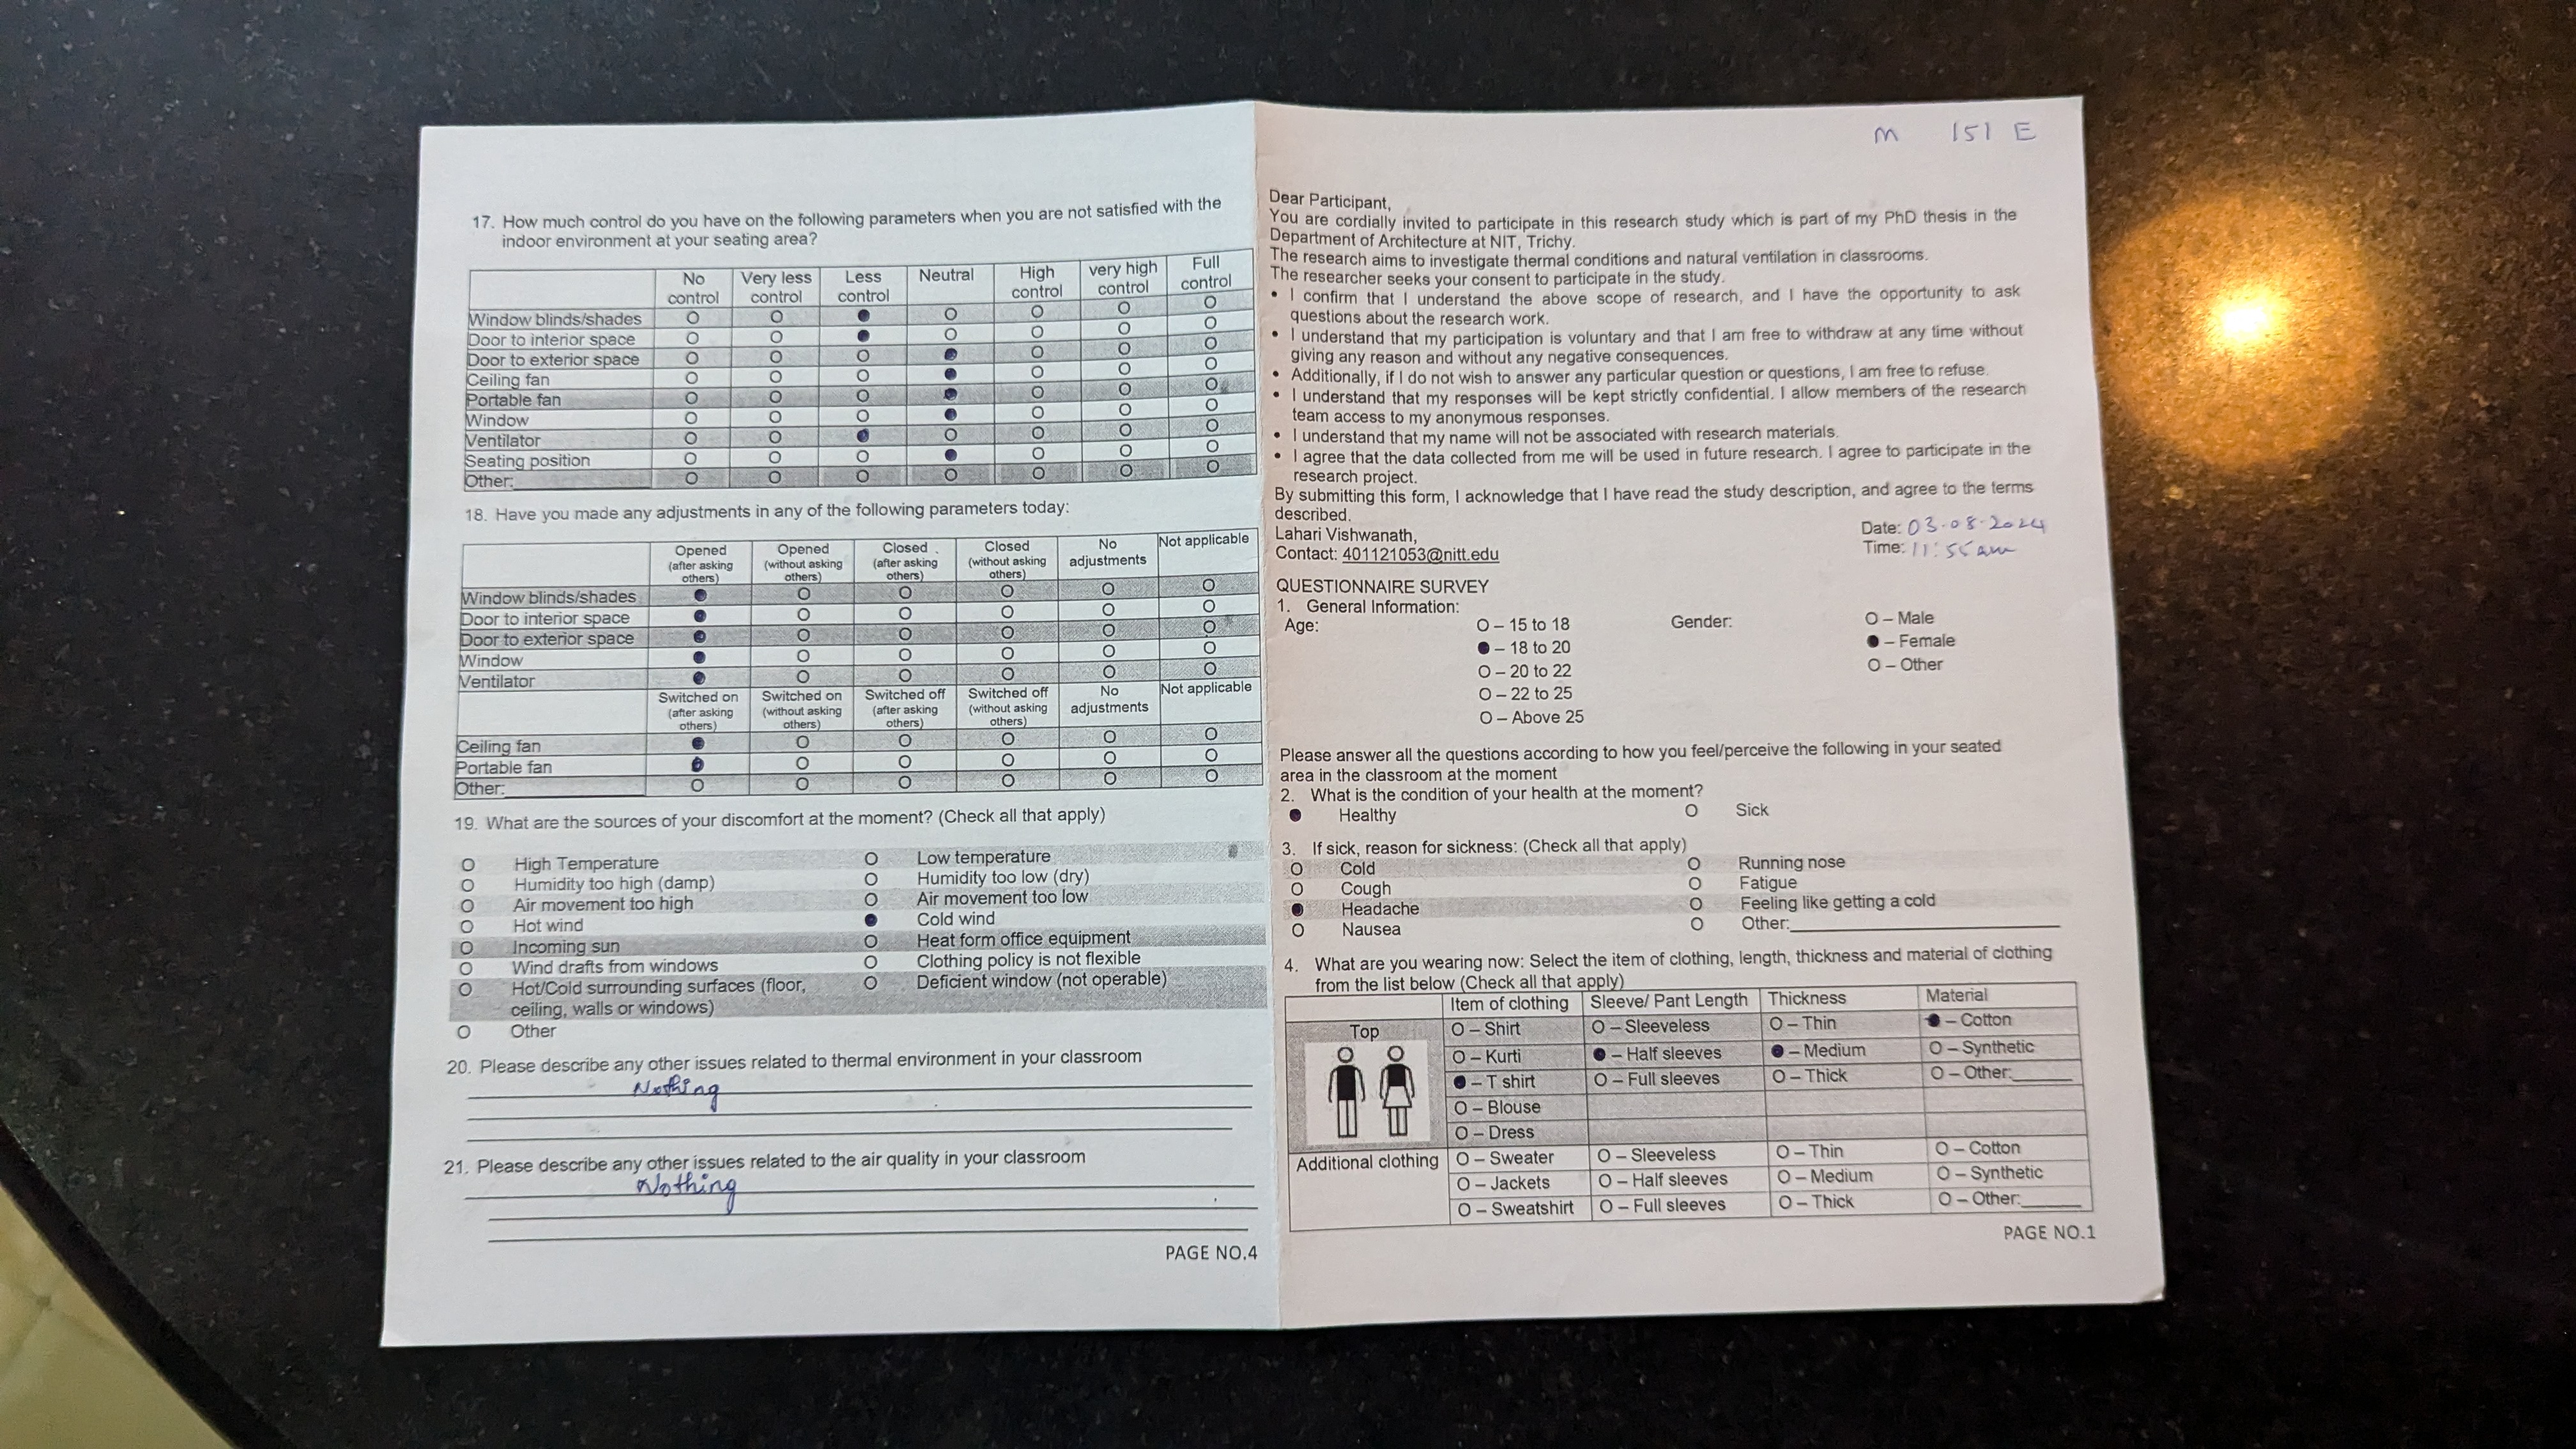 17. How much control do you have on the following parameters when you are not satisfied with the
indoor environment at your seating area?
No control Very less control Less control Neutral High control very high control Full control
Window blinds/shades O O ● O O O O
Door to interior space O O ● O O O O
Door to exterior space O O O ● O O O
Ceiling fan O O O ● O O O
Portable fan O O O ● O O O
Window O O O ● O O O
Ventilator O O ● O O O O
Seating position O O O ● O O O
Other: O O O O O O O
18. Have you made any adjustments in any of the following parameters today:
Opened (after asking others) Opened (without asking others) Closed (after asking others) Closed (without asking others) No adjustments Not applicable
Window blinds/shades ● O O O O O
Door to interior space ● O O O O O
Door to exterior space ● O O O O O
Window ● O O O O O
Ventilator ● O O O O O
Switched on (after asking others) Switched on (without asking others) Switched off (after asking others) Switched off (without asking others) No adjustments Not applicable
Ceiling fan ● O O O O O
Portable fan ● O O O O O
Other: O O O O O O
19. What are the sources of your discomfort at the moment? (Check all that apply)
O High Temperature O Low temperature
O Humidity too high (damp) O Humidity too low (dry)
O Air movement too high O Air movement too low
O Hot wind ● Cold wind
O Incoming sun O Heat form office equipment
O Wind drafts from windows O Clothing policy is not flexible
O Hot/Cold surrounding surfaces (floor, O Deficient window (not operable)
ceiling, walls or windows)
O Other
20. Please describe any other issues related to thermal environment in your classroom
Nothing
21. Please describe any other issues related to the air quality in your classroom
Nothing
PAGE NO.4
M 151 E
Dear Participant,
You are cordially invited to participate in this research study which is part of my PhD thesis in the
Department of Architecture at NIT, Trichy.
The research aims to investigate thermal conditions and natural ventilation in classrooms.
The researcher seeks your consent to participate in the study.
• I confirm that I understand the above scope of research, and I have the opportunity to ask
questions about the research work.
• I understand that my participation is voluntary and that I am free to withdraw at any time without
giving any reason and without any negative consequences.
• Additionally, if I do not wish to answer any particular question or questions, I am free to refuse.
• I understand that my responses will be kept strictly confidential. I allow members of the research
team access to my anonymous responses.
• I understand that my name will not be associated with research materials.
• I agree that the data collected from me will be used in future research. I agree to participate in the
research project.
By submitting this form, I acknowledge that I have read the study description, and agree to the terms
described.
Date: 03.08.2024
Lahari Vishwanath,
Time: 11:55am
Contact: 401121053@nitt.edu
QUESTIONNAIRE SURVEY
1. General Information:
Age: O – 15 to 18 Gender: O – Male
● – 18 to 20 ● – Female
O – 20 to 22 O – Other
O – 22 to 25
O – Above 25
Please answer all the questions according to how you feel/perceive the following in your seated
area in the classroom at the moment
2. What is the condition of your health at the moment?
● Healthy O Sick
3. If sick, reason for sickness: (Check all that apply)
O Cold O Running nose
O Cough O Fatigue
● Headache O Feeling like getting a cold
O Nausea O Other:
4. What are you wearing now: Select the item of clothing, length, thickness and material of clothing
from the list below (Check all that apply)
Item of clothing Sleeve/ Pant Length Thickness Material
Top O – Shirt O – Sleeveless O – Thin ● – Cotton
O – Kurti ● – Half sleeves ● – Medium O – Synthetic
● – T shirt O – Full sleeves O – Thick O – Other:
O – Blouse
O – Dress
Additional clothing O – Sweater O – Sleeveless O – Thin O – Cotton
O – Jackets O – Half sleeves O – Medium O – Synthetic
O – Sweatshirt O – Full sleeves O – Thick O – Other:
PAGE NO.1